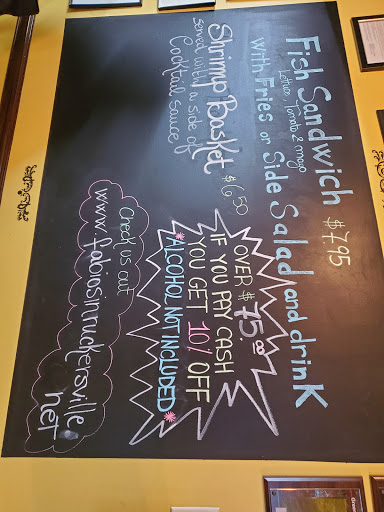 Fish Sandwich $7.95
Lettuce, Tomato & mayo
with Fries or Side Salad and drink
Shrimp Basket $6.50
served with a side of
Cocktail sauce
OVER $75.00
IF YOU PAY CASH
YOU GET 10% OFF
*ALCOHOL NOT INCLUDED*
Check us out
www.fabiosinruckersville.
net